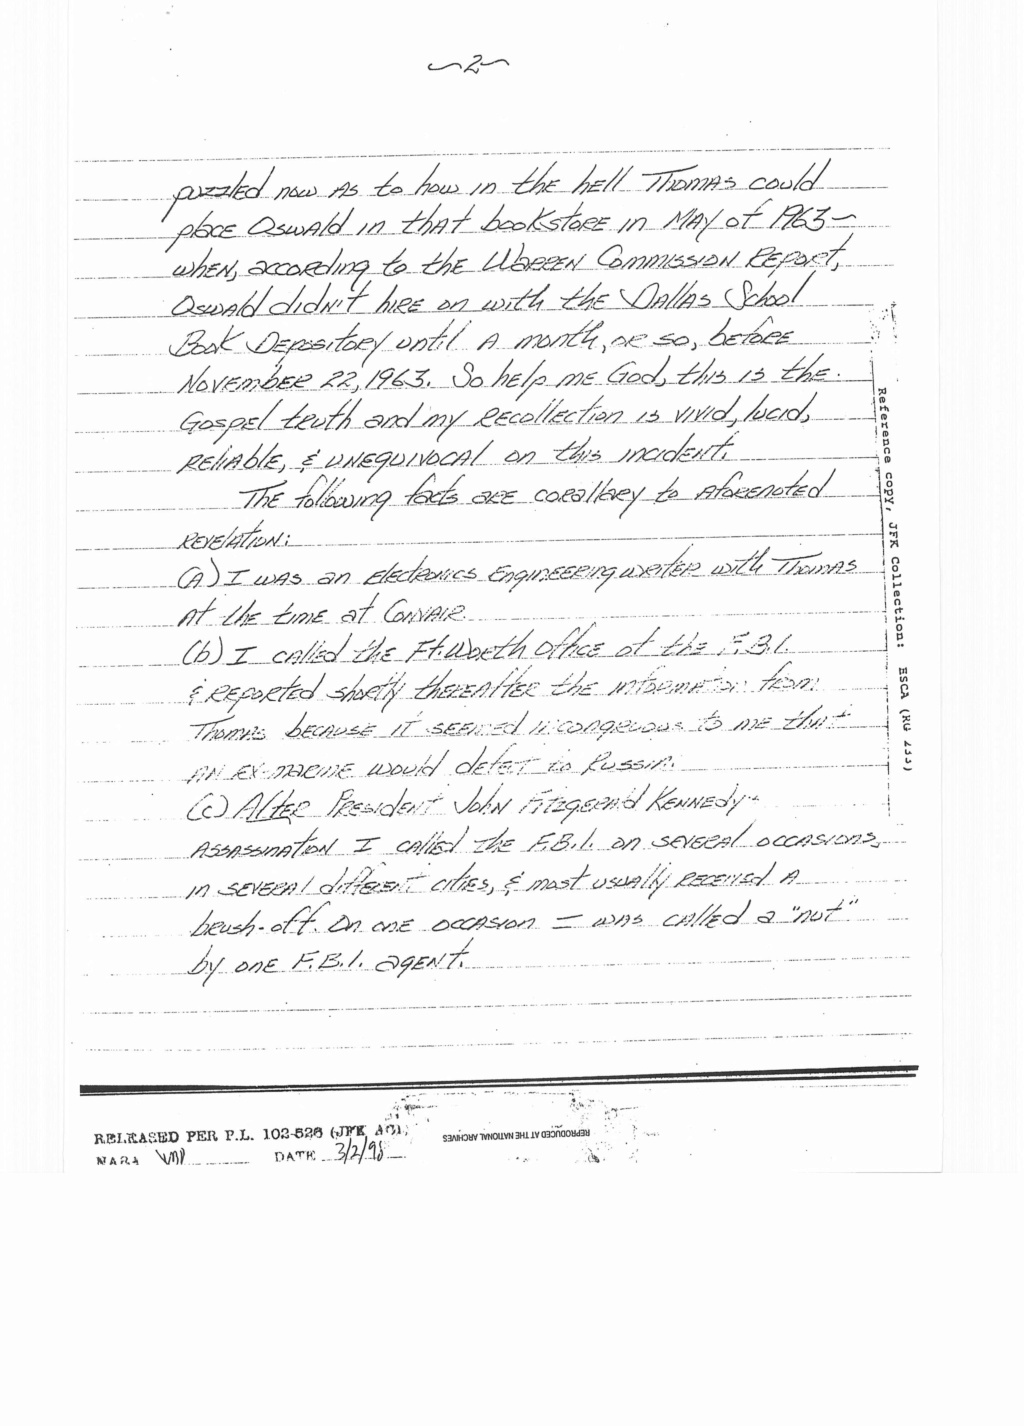 2
puzzled now as to how in the hell Thomas could
place Oswald in that bookstore in May of 1963 —
when, according to the Warren Commission Report,
Oswald didn't hire on with the Dallas School
Book Depository until a month, or so, before
November 22, 1963. So help me God, this is the
Gospel truth and my recollection is vivid, lucid,
reliable, & unequivocal on this incident.
The following facts are corallary to aforenoted
revelation:
(A) I was an electronics engineering writer with Thomas
at the time at Convair.
(b) I called the Ft. Worth Office of the F.B.I.
& reported shortly thereafter the information from
Thomas because it seemed incongruous to me that
an ex-marine would defect to Russia.
(c) After President John Fitzgerald Kennedy
assassination I called the F.B.I. on several occasions,
in several different cities, & most usually received a
brush-off. On one occasion I was called a "nut"
by one F.B.I. agent.
Reference copy, JFK Collection: HSCA (RG 233)
RELEASED PER P.L. 102-526 (JFK ACT)
NARA DATE 3/2/98
REPRODUCED AT THE NATIONAL ARCHIVES